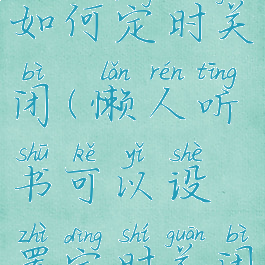 如何定时关
bì lǎn rén tīng
闭(懒人听
shū kě yǐ shè
书可以设
zhì dìng shí guān bì
置定时关闭